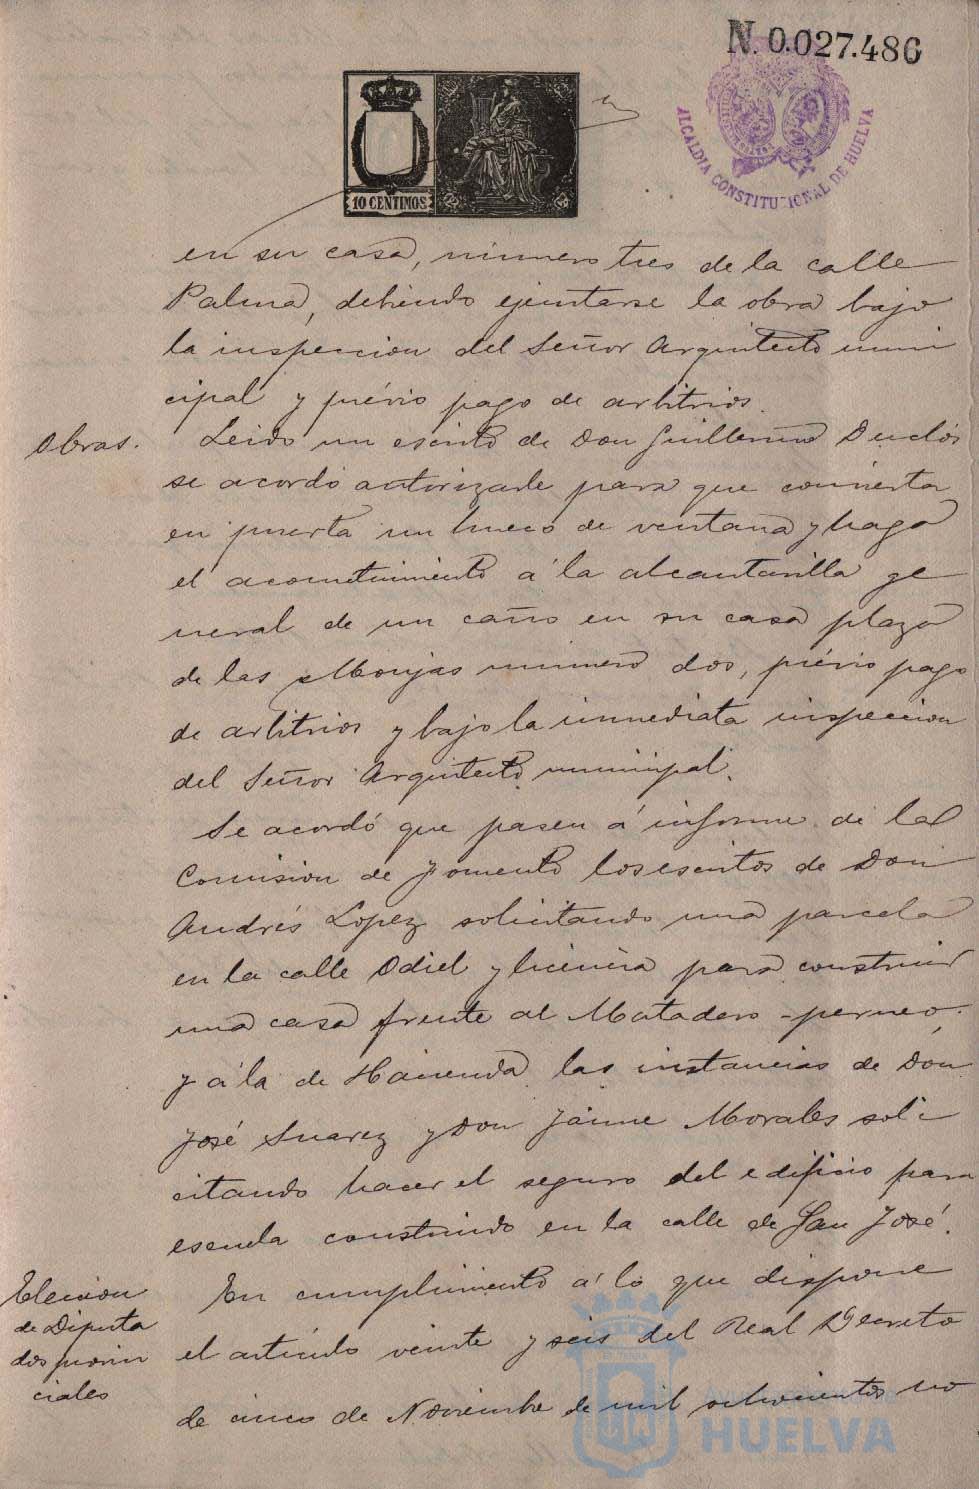 N. 0.027.486
ALCALDIA CONSTITUCIONAL DE HUELVA
10 CENTIMOS
en su casa, número tres de la calle
Palma, debiendo ejecutarse la obra bajo
la inspeccion del Señor Arquitecto muni
cipal y prévio pago de arbitrios.
Obras.
Leido un escrito de Don Guillermo Duclós
se acordó autorizarle para que convierta
en puerta un hueco de ventana y haga
el acometimiento á la alcantarilla ge
neral de un caño en su casa plaza
de las Monjas número dos, prévio pago
de arbitrios y bajo la inmediata inspeccion
del Señor Arquitecto municipal.
Se acordó que pasen á informe de la
Comision de Fomento los escritos de Don
Andrés Lopez solicitando una parcela
en la calle Odiel y licencia para construir
una casa frente al Matadero
y á la de Hacienda las instancias de Don
José Suarez y Don Jaime Morales soli
citando hacer el seguro del edificio para
escuela construido en la calle de San José.
Eleccion
de Diputa
dos provin
ciales
En cumplimiento á lo que dispone
el artículo veinte y seis del Real Decreto
de cinco de Noviembre de mil ochocientos no
Ayuntamiento
HUELVA